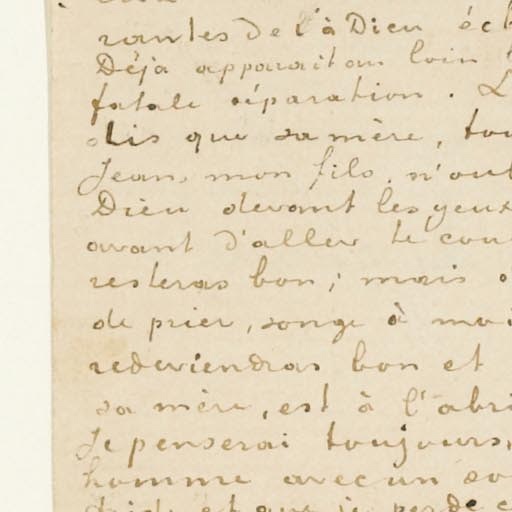 rantes de l'à Dieu
Déjà apparait au loin
fatale séparation. L
dis que sa mère, tou
Jean, mon fils, n'oub
Dieu devant les yeux
avant d'aller te cou
resteras bon; mais
de prier, songe à moi
redeviendras bon et
sa mère, est à l'abri
Je penserai toujours,
homme avec un so